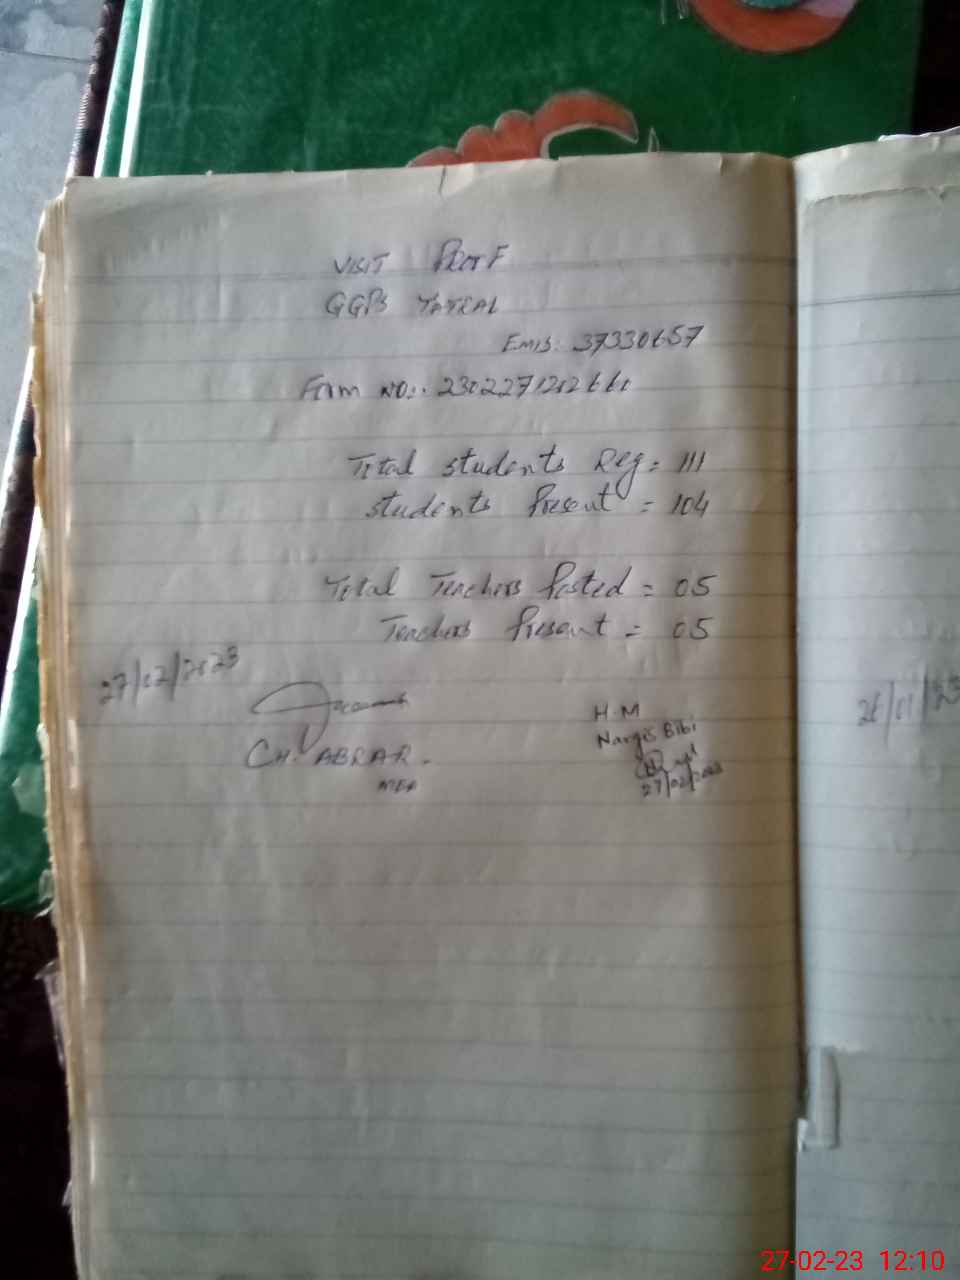 VISIT PROOF
GGPS TATRAL
EMIS: 37330657
Form NO:. 2302271212660
Total students Reg = 111
students Present = 104
Total Teachers Posted = 05
Teachers Present = 05
27/02/2023
CH. ABRAR.
MEA
H.M
Nargis Bibi
27/02/2023
26/01/23
27-02-23 12:10